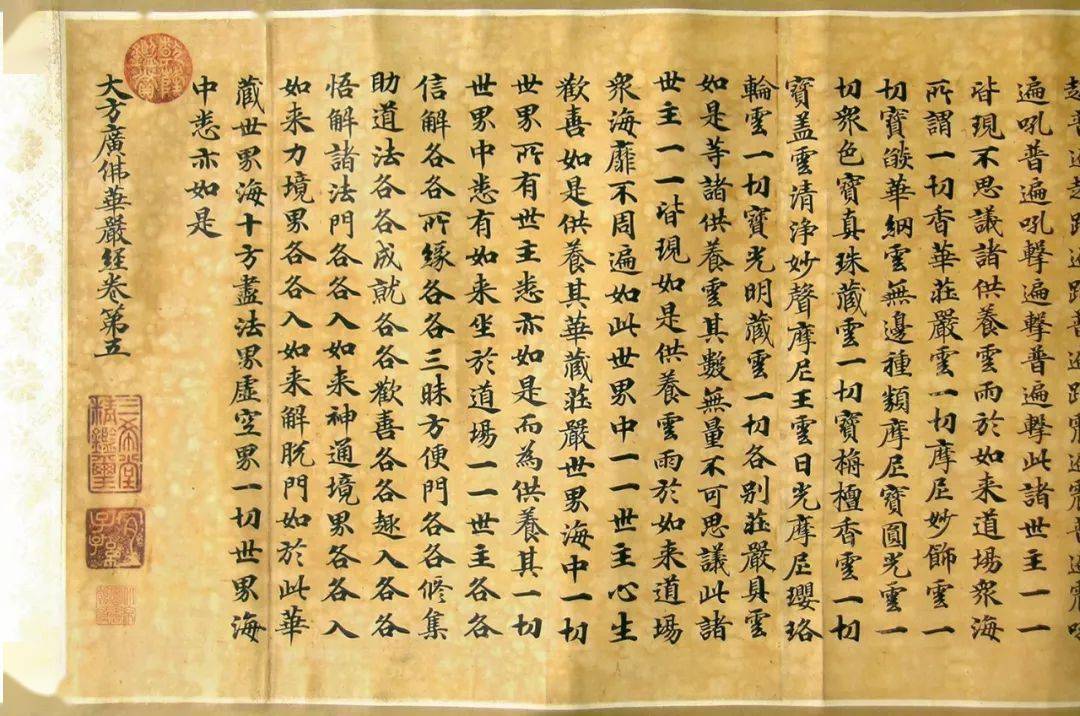 遍吼普遍吼擊遍擊普遍擊此諸世主一一
皆現不思議諸供養雲雨於如来道場衆海
所謂一切香華莊嚴雲一切摩尼妙飾雲一
切寶燄華網雲無邊種類摩尼寶圓光雲一
切衆色寶真珠藏雲一切寶栴檀香雲一切
寶盖雲清淨妙聲摩尼王雲日光摩尼瓔珞
輪雲一切寶光明藏雲一切各别莊嚴具雲
如是等諸供養雲其數無量不可思議此諸
世主一一皆現如是供養雲雨於如来道場
衆海靡不周遍如此世界中一一世主心生
歡喜如是供養其華藏莊嚴世界海中一切
世界所有世主悉亦如是而為供養其一切
世界中悉有如来坐於道場一一世主各各
信解各各所緣各各三昧方便門各各修集
助道法各各成就各各歡喜各各趣入各各
悟解諸法門各各入如来神通境界各各入
如来力境界各各入如来解脫門如於此華
藏世界海十方盡法界虛空界一切世界海
中悉亦如是
大方廣佛華嚴經卷第五
乾隆鑑賞
三希堂精鑑璽
宜子孫